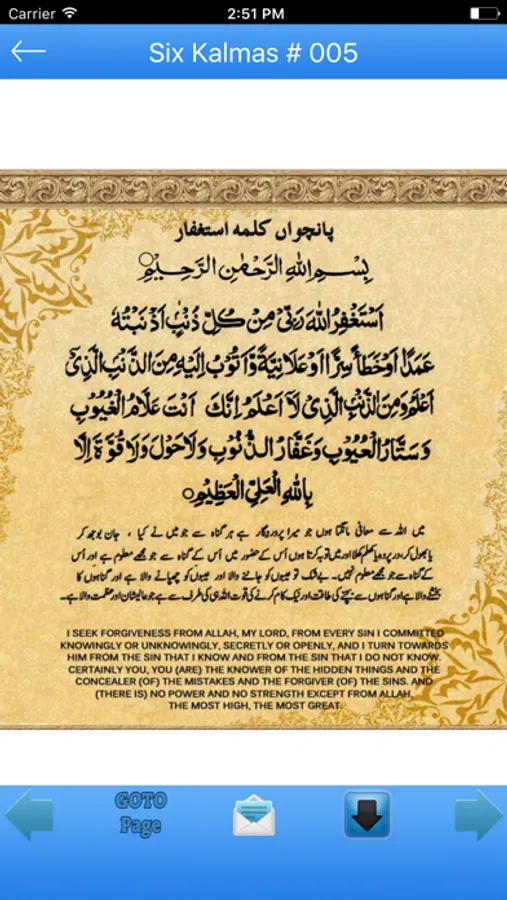 Carrier 2:51 PM
Six Kalmas # 005
پانچواں کلمہ استغفار
بِسْمِ اللهِ الرَّحْمٰنِ الرَّحِيْمِ
اَسْتَغْفِرُ اللهَ رَبِّىْ مِنْ كُلِّ ذَنْۢبٍ اَذْنَبْتُهٗ
عَمَدًا اَوْ خَطَأً سِرًّا اَوْ عَلَانِيَةً وَّاَتُوْبُ اِلَيْهِ مِنَ الذَّنْۢبِ الَّذِىْٓ
اَعْلَمُ وَمِنَ الذَّنْۢبِ الَّذِىْ لَآ اَعْلَمُ اِنَّكَ اَنْتَ عَلَّامُ الْغُيُوْبِ
وَسَتَّارُ الْعُيُوْبِ وَغَفَّارُ الذُّنُوْبِ وَلَا حَوْلَ وَلَا قُوَّةَ اِلَّا
بِاللهِ الْعَلِىِّ الْعَظِيْمِ
میں اللہ سے معافی مانگتا ہوں جو میرا پروردگار ہے ہر گناہ سے جو میں نے کیا ، جان بوجھ کر
یا بھول کر، در پردہ یا کھلم کھلا اور میں توبہ کرتا ہوں اُس کے حضور میں اُس کے گناہ سے جو مجھے معلوم ہے اور اُس
کے گناہ سے جو مجھے معلوم نہیں۔ بے شک تو غیبوں کو جاننے والا اور عیبوں کو چھپانے والا ہے اور گناہوں کا
بخشنے والا ہے اور گناہوں سے بچنے کی طاقت اور نیک کام کرنے کی قوت اللہ ہی کی طرف سے ہے جو عالیشان اور عظمت والا ہے۔
I SEEK FORGIVENESS FROM ALLAH, MY LORD, FROM EVERY SIN I COMMITTED
KNOWINGLY OR UNKNOWINGLY, SECRETLY OR OPENLY, AND I TURN TOWARDS
HIM FROM THE SIN THAT I KNOW AND FROM THE SIN THAT I DO NOT KNOW.
CERTAINLY YOU, YOU (ARE) THE KNOWER OF THE HIDDEN THINGS AND THE
CONCEALER (OF) THE MISTAKES AND THE FORGIVER (OF) THE SINS. AND
(THERE IS) NO POWER AND NO STRENGTH EXCEPT FROM ALLAH,
THE MOST HIGH, THE MOST GREAT.
GOTO
Page